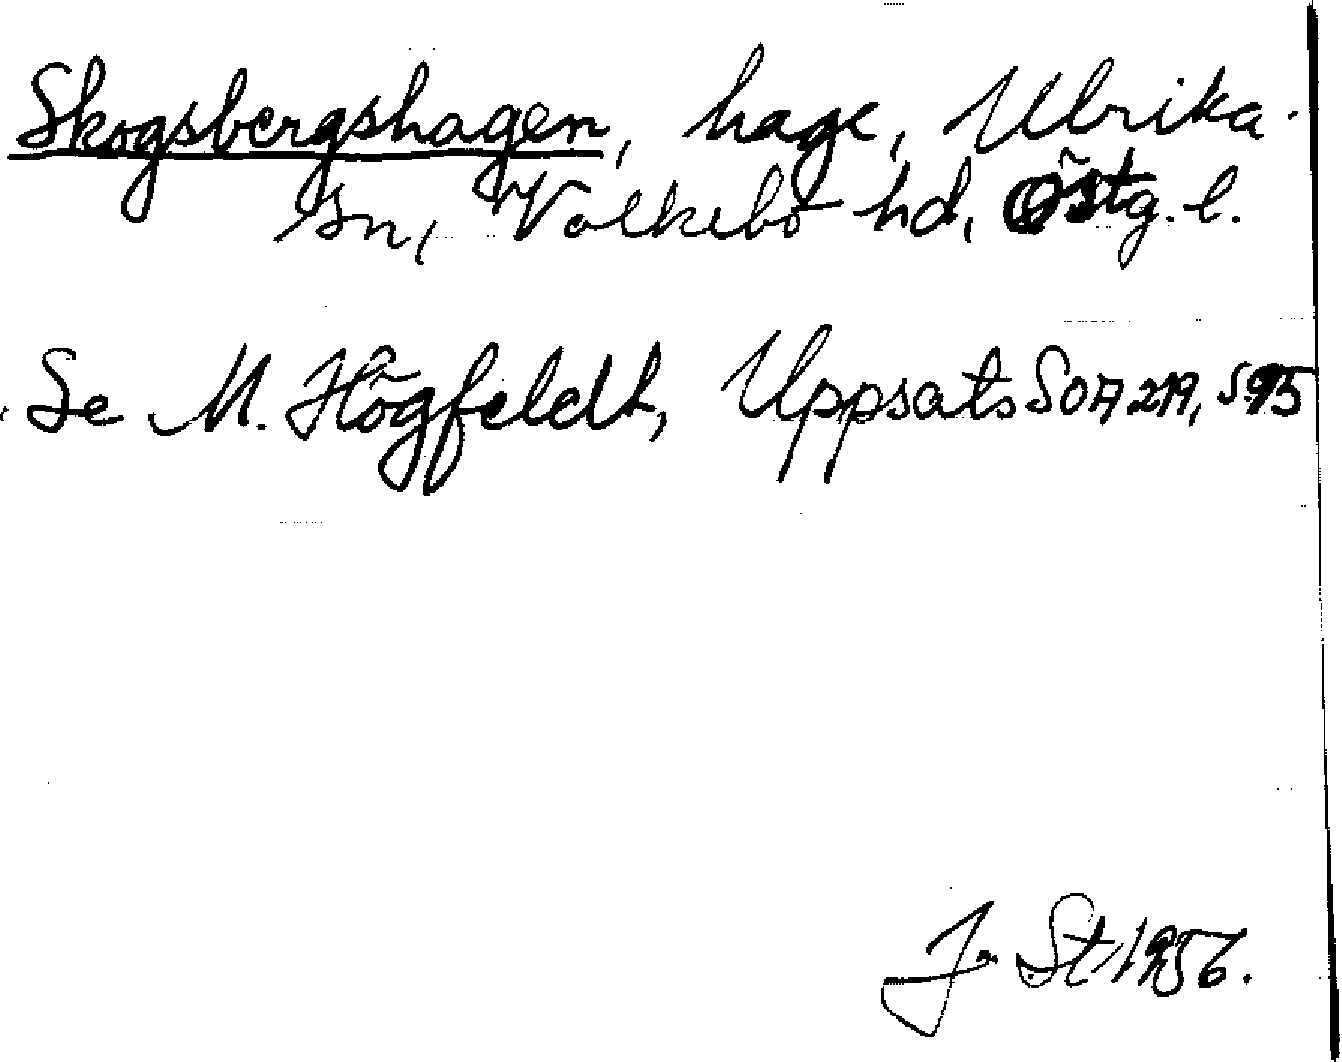 Skogsbergshagen, hage, Ulrika
sn, Valkebo hd, Östg. l.
Se M. Högfeldt, Uppsats SOA 219, s 95
St 1956.